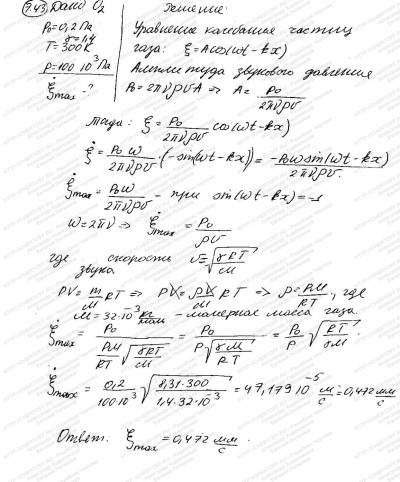 7.43 Дано O₂
P₀=0,2 Па
γ=1,4
T=300 K
p=100·10³ Па
ξ̇max -?
Решение:
Уравнение колебания частиц
газа: ξ=Acos(ωt-kx)
Амплитуда звукового давления
P₀=2πνρυA ⇒ A= P₀/2πνρυ
Тогда: ξ= P₀/2πνρυ cos(ωt-kx)
ξ̇= P₀ω/2πνρυ·(-sin(ωt-kx))= -P₀ω sin(ωt-kx)/2πνρυ.
ξ̇max= P₀ω/2πνρυ - при sin(ωt-kx)=-1
ω=2πν ⇒ ξ̇max= P₀/ρυ
где скорость звука υ=√(γRT/M)
PV= m/M RT ⇒ PV= ρV/M RT ⇒ ρ= PM/RT, где
M=32·10⁻³ кг/моль - молярная масса газа
ξ̇max= P₀/(PM/RT √(γRT/M)) = P₀/(P√(γM/RT)) = P₀/P √(RT/γM)
ξ̇max = 0,2/100·10³ √(8,31·300/1,4·32·10⁻³) =47,179·10⁻⁵ м/с=0,472 мм/с
Ответ: ξ̇max=0,472 мм/с.